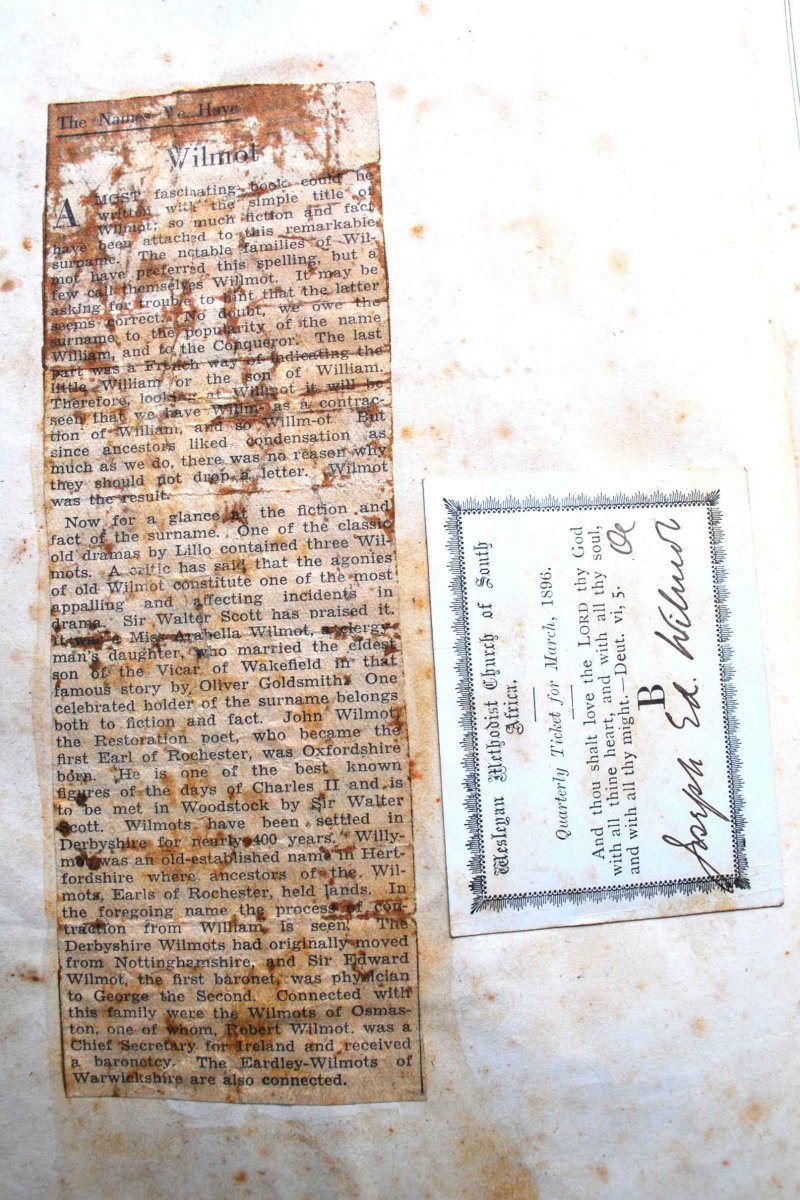 The Names We Have
Wilmot
A MOST fascinating book could be
written with the simple title of
Wilmot; so much fiction and fact
have been attached to this remarkable
surname. The notable families of Wil-
mot have preferred this spelling, but a
few call themselves Willmot. It may be
asking for trouble to hint that the latter
seems correct. No doubt, we owe the
surname to the popularity of the name
William, and to the Conqueror. The last
part was a French way of indicating the
little William or the son of William.
Therefore, looking at Willmot it will be
seen that we have Willm- as a contrac-
tion of William, and so Willm-ot. But
since ancestors liked condensation as
much as we do, there was no reason why
they should not drop a letter. Wilmot
was the result.
Now for a glance at the fiction and
fact of the surname. One of the classic
old dramas by Lillo contained three Wil-
mots. A critic has said that the agonies
of old Wilmot constitute one of the most
appalling and affecting incidents in
drama. Sir Walter Scott has praised it.
It was a Miss Arabella Wilmot, a clergy-
man's daughter, who married the eldest
son of the Vicar of Wakefield in that
famous story by Oliver Goldsmith. One
celebrated holder of the surname belongs
both to fiction and fact. John Wilmot,
the Restoration poet, who became the
first Earl of Rochester, was Oxfordshire
born. He is one of the best known
figures of the days of Charles II and is
to be met in Woodstock by Sir Walter
Scott. Wilmots have been settled in
Derbyshire for nearly 400 years. Willy-
mot was an old-established name in Hert-
fordshire where ancestors of the Wil-
mots, Earls of Rochester, held lands. In
the foregoing name the process of con-
traction from William is seen. The
Derbyshire Wilmots had originally moved
from Nottinghamshire, and Sir Edward
Wilmot, the first baronet, was physician
to George the Second. Connected with
this family were the Wilmots of Osmas-
ton, one of whom, Robert Wilmot, was a
Chief Secretary for Ireland and received
a baronetcy. The Eardley-Wilmots of
Warwickshire are also connected.
Wesleyan Methodist Church of South
Africa.
Quarterly Ticket for March, 1896.
And thou shalt love the LORD thy God
with all thine heart, and with all thy soul,
and with all thy might.—Deut. vi, 5.
B
Joseph Ed. Wilmot